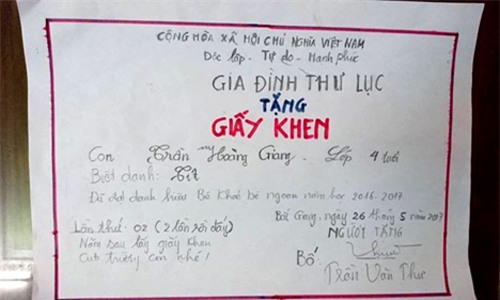 CỘNG HÒA XÃ HỘI CHỦ NGHĨA VIỆT NAM
Độc lập - Tự do - Hạnh phúc
GIA ĐÌNH THƯ LỤC
TẶNG
GIẤY KHEN
Con Trần Hoàng Giang. Lớp 4 tuổi
Biệt danh: Tít
Đã đạt danh hiệu Bé khoẻ bé ngoan năm học 2016-2017
Bắc Giang, ngày 26 tháng 5 năm 2017
Lần thứ: 02 (2 lần rồi đấy)
Năm sau lấy giấy khen
của trường con nhé!
NGƯỜI TẶNG
Bố:
Trần Văn Thư